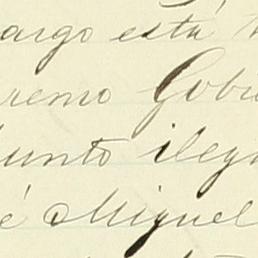 argo está
remo Gobi
junto ileg
é Miguel